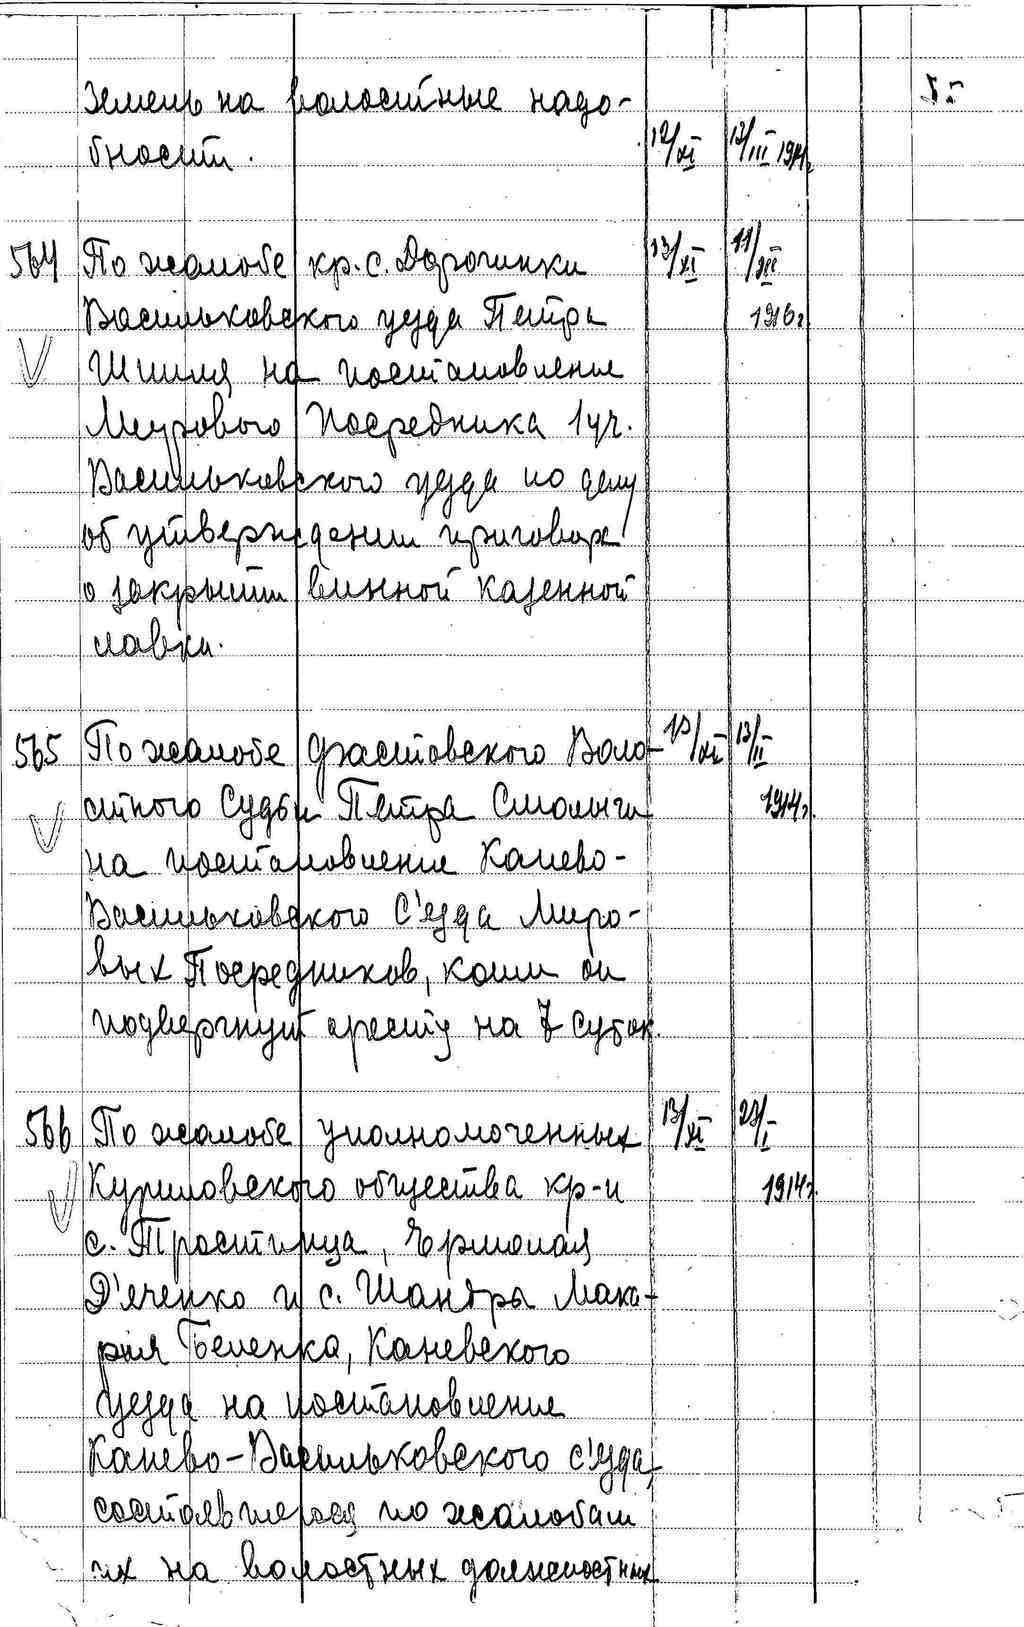 земель на волостные надо-
бности. 12/XI 12/III 1914г.
564 По жалобе кр. с. Дорогинки 13/XI 11/XII
Васильковского уезда Петра 1916г.
Шпиля на постановление
Мирового Посредника 1 уч.
Васильковского уезда по делу
об утверждении приговора
о закрытии винной казенной
лавки.
565 По жалобе Фастовского Воло- 13/XI 13/II
стного Судьи Петра Смолыги 1914г.
на постановление Канево-
Васильковского С'езда Миро-
вых Посредников, коим он
подвергнут аресту на 7 суток.
566 По жалобе уполномоченных 13/XI 27/I
Куриловского общества кр-н 1914г.
с. Тростинца, Ермолая
Д'яченко и с. Шандры Мака-
рия Беленка, Каневского
уезда на постановление
Канево-Васильковского с'езда,
состоявшегося по жалобам
их на волостных должностных